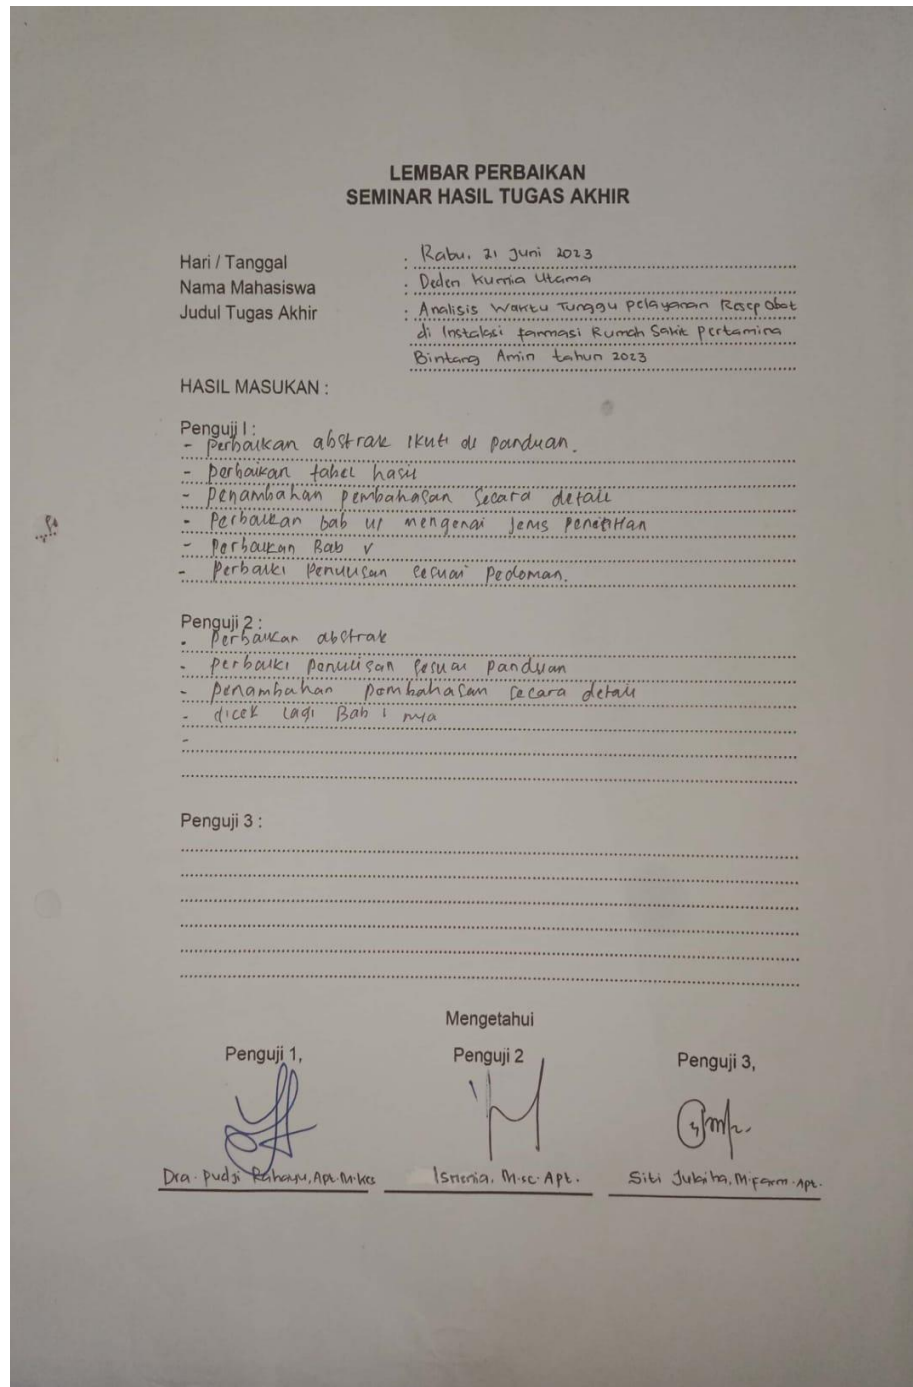 LEMBAR PERBAIKAN
SEMINAR HASIL TUGAS AKHIR
Hari / Tanggal : Rabu, 21 Juni 2023
Nama Mahasiswa : Deden Kurnia Utama
Judul Tugas Akhir : Analisis Waktu Tunggu pelayanan Resep Obat
di Instalasi farmasi Rumah Sakit Pertamina
Bintang Amin tahun 2023
HASIL MASUKAN :
Penguji I :
- Perbaikan abstrak ikuti di panduan.
- perbaikan tabel hasil
- penambahan pembahasan secara detail
- Perbaikan bab III mengenai jenis penelitian
- Perbaikan Bab V
- Perbaiki Penulisan sesuai Pedoman.
Penguji 2 :
- Perbaikan abstrak
- perbaiki penulisan sesuai panduan
- penambahan pembahasan secara detail
- dicek lagi Bab 1 nya
-
Penguji 3 :
Mengetahui
Penguji 1, Penguji 2 Penguji 3,
Dra. Pudji Rahayu, Apt. M.Kes Isnenia, M.sc. Apt. Siti Julaiha, M.farm. Apt.